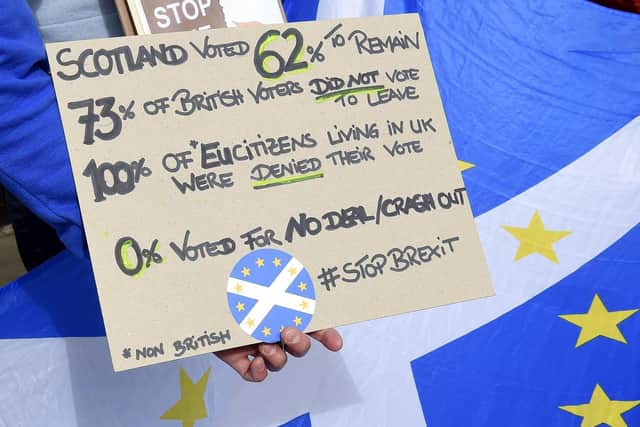 STOP
SCOTLAND VOTED 62% TO REMAIN
73% OF BRITISH VOTERS DID NOT VOTE
TO LEAVE
100% OF *EU CITIZENS LIVING IN UK
WERE DENIED THEIR VOTE
0% VOTED FOR NO DEAL/CRASH OUT
#STOPBREXIT
*NON BRITISH